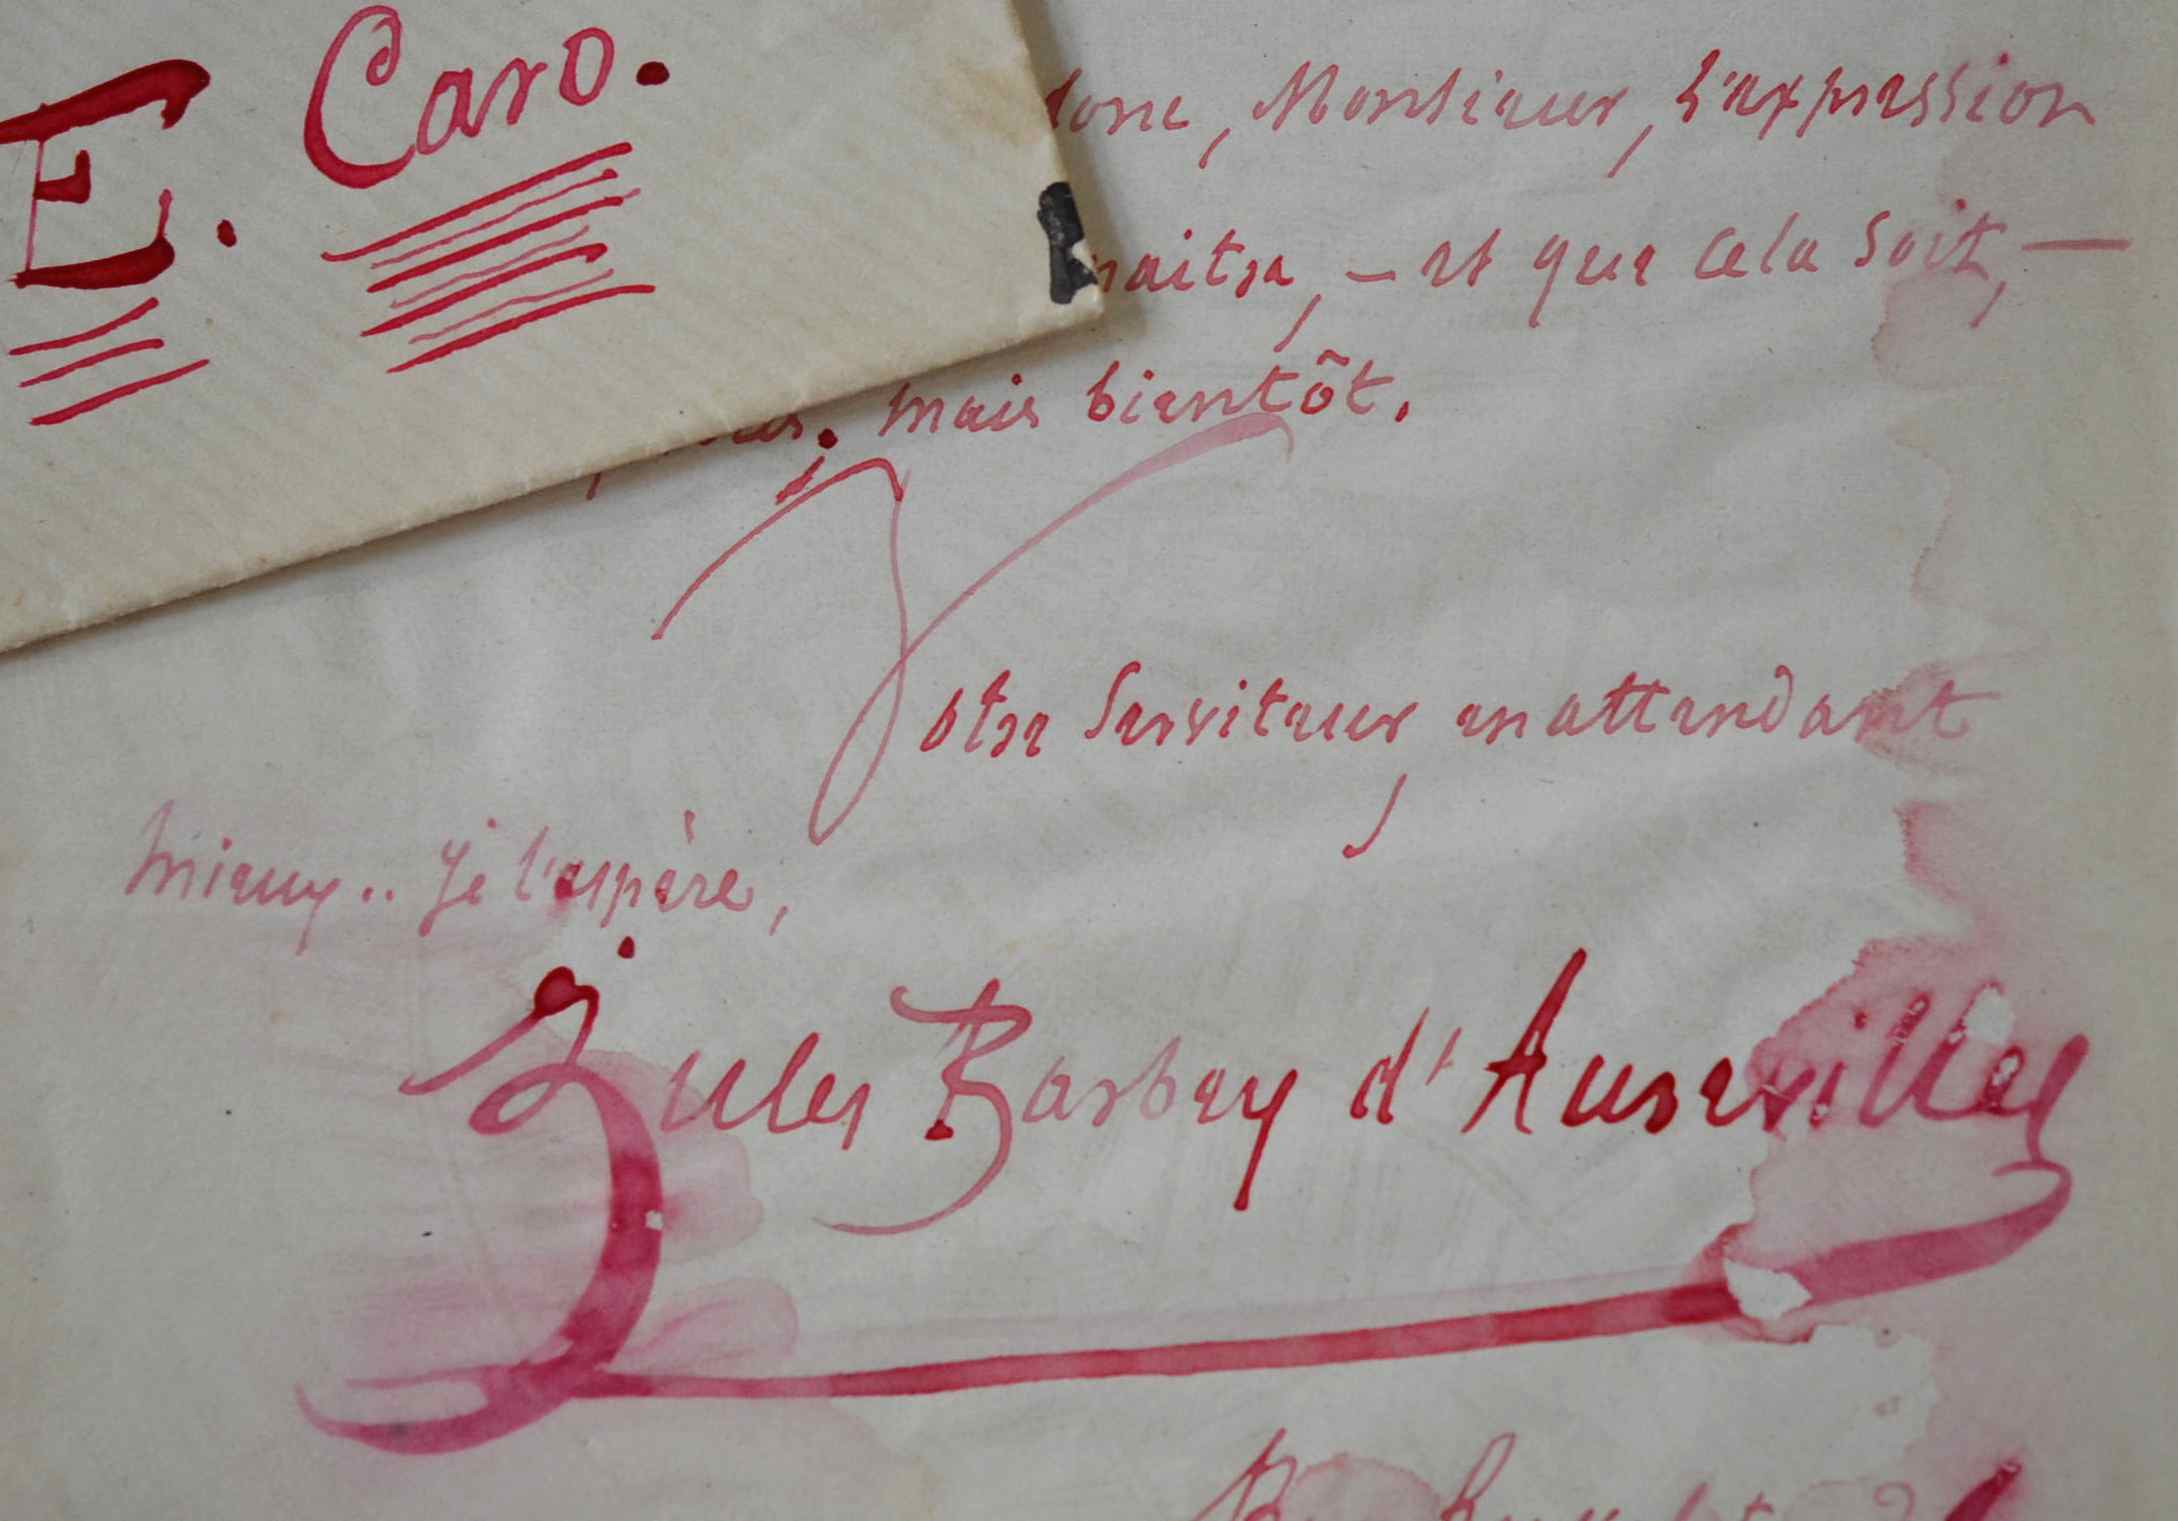 E. Caro.
donc, Monsieur, l'expression
naitre, — et que cela soit, —
mais bientôt.
Votre serviteur en attendant
mieux.. Je l'espère,
Jules Barbey d'Aurevilly